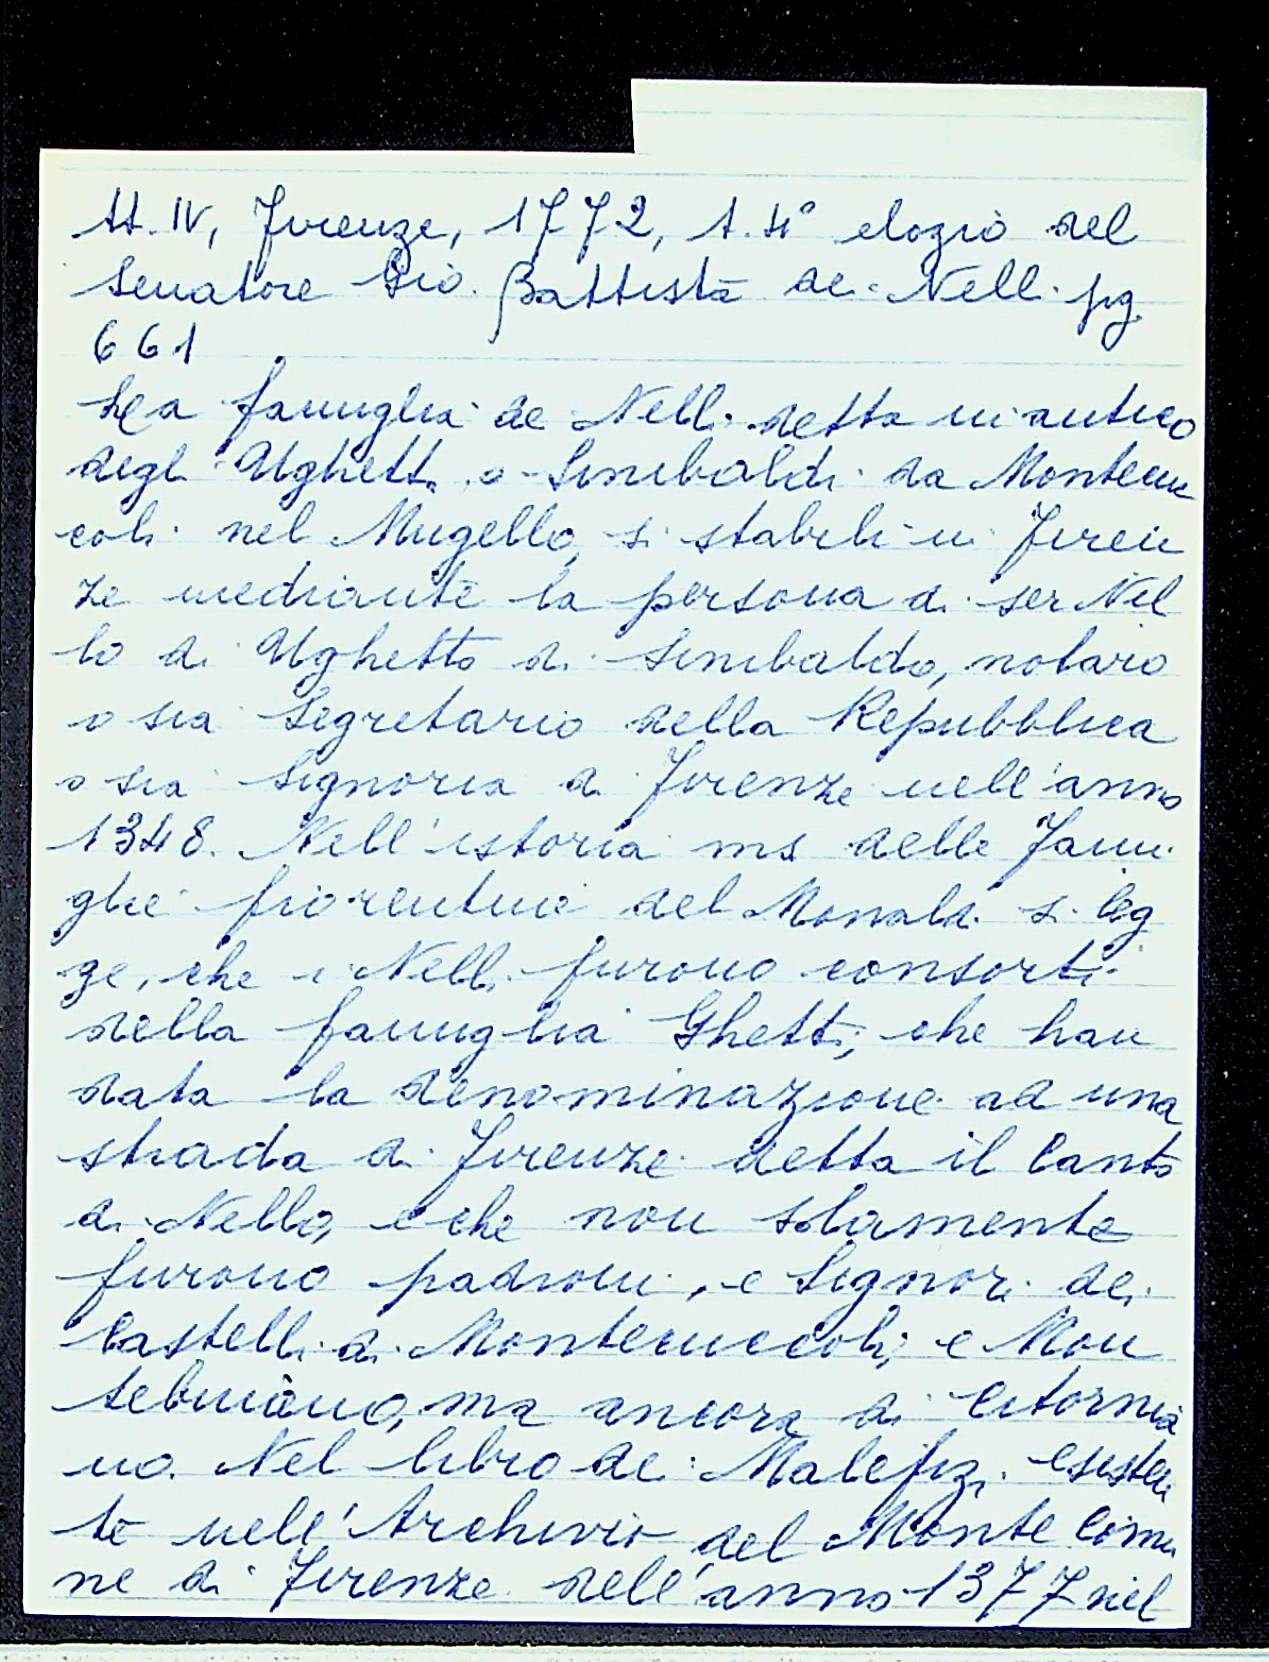 tt. IV, Firenze, 1772, t. 4° elogio del
Senatore Gio. Battista de Nelli pg
661
La famiglia de Nelli detta in antico
degli Ughetti, o Sinibaldi da Montecuc
coli nel Mugello, si stabilì in Firen
ze mediante la persona di ser Nel
lo di Ughetto di Sinibaldo, notaro
o sia Segretario della Repubblica
o sia Signoria di Firenze nell'anno
1348. Nell'istoria ms delle Fami
glie fiorentine del Monaldi si leg
ge, che i Nelli furono consorti
della famiglia Ghetti, che han
data la denominazione ad una
strada di Firenze detta il Canto
di Nello, e che non solamente
furono padroni, e Signori dei
Castelli di Montecuccoli, e Mon
tebuiano, ma ancora di Citornia
no. Nel libro dei Malefizi esisten
te nell'Archivio del Monte Comu
ne di Firenze dell'anno 1377 nel